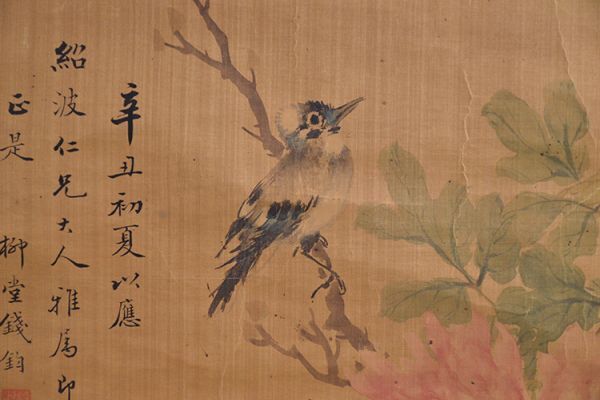 辛丑初夏以應
紹波仁兄大人雅属即
正是 柳堂錢鈞